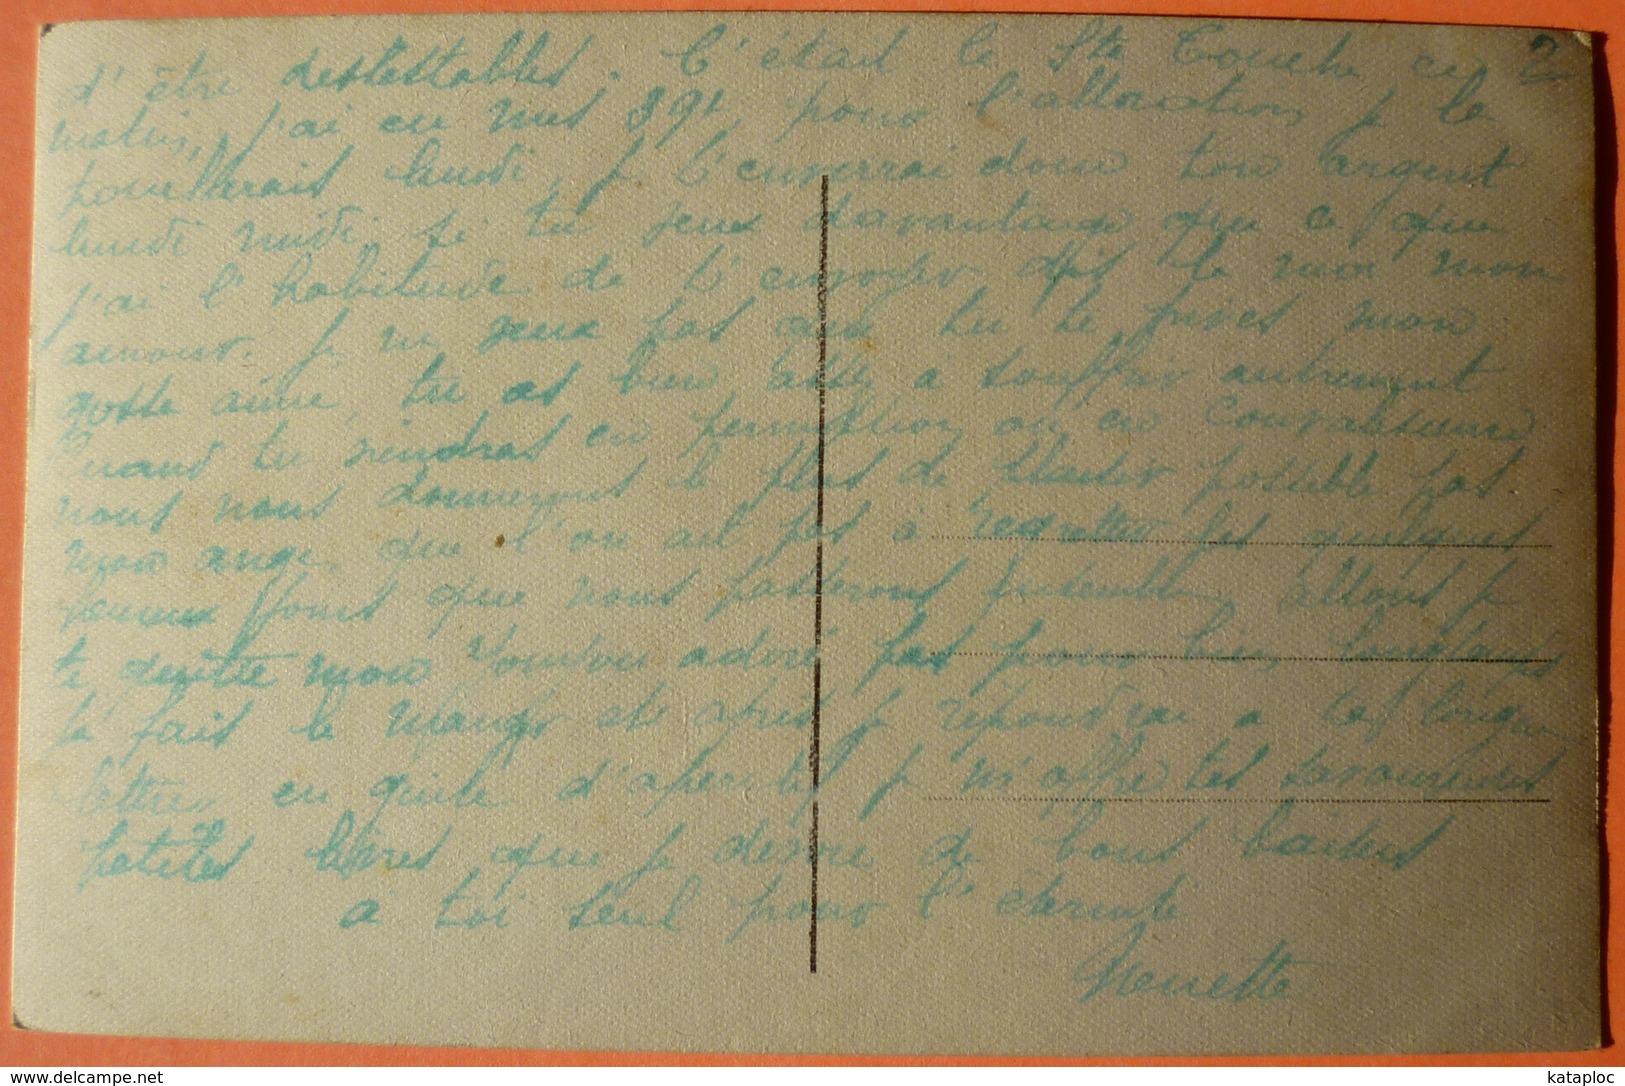 2
d'être destestables. C'était la Ste Touche ce
matin, j'ai eu mes 89f, pour l'allocation je la
toucherais lundi, je t'enverrai donc ton argent
lundi midi, si tu veux davantage que ce que
j'ai l'habitude de t'envoyer dis le moi mon
amour. Je ne veux pas que tu te prives mon
gosse aimé, tu as bien assez à souffrir autrement
Quand tu viendras en permission ou en convalescence
nous nous donnerons le plus de plaisir possible pas
mon ange, que l'on ait pas à regretter les quelques
heureux jours que nous passerons ensemble, allons je
te quitte mon Loulou adoré pas pour bien longtemps
je fais le manger et après je répondrai à ta longue
lettre, en guise d'apéritif je m'offre tes savoureuses
petites lèvres que je dévore de bons baisers
à toi seul pour l'éternité
Nenette
kataploc
www.delcampe.net